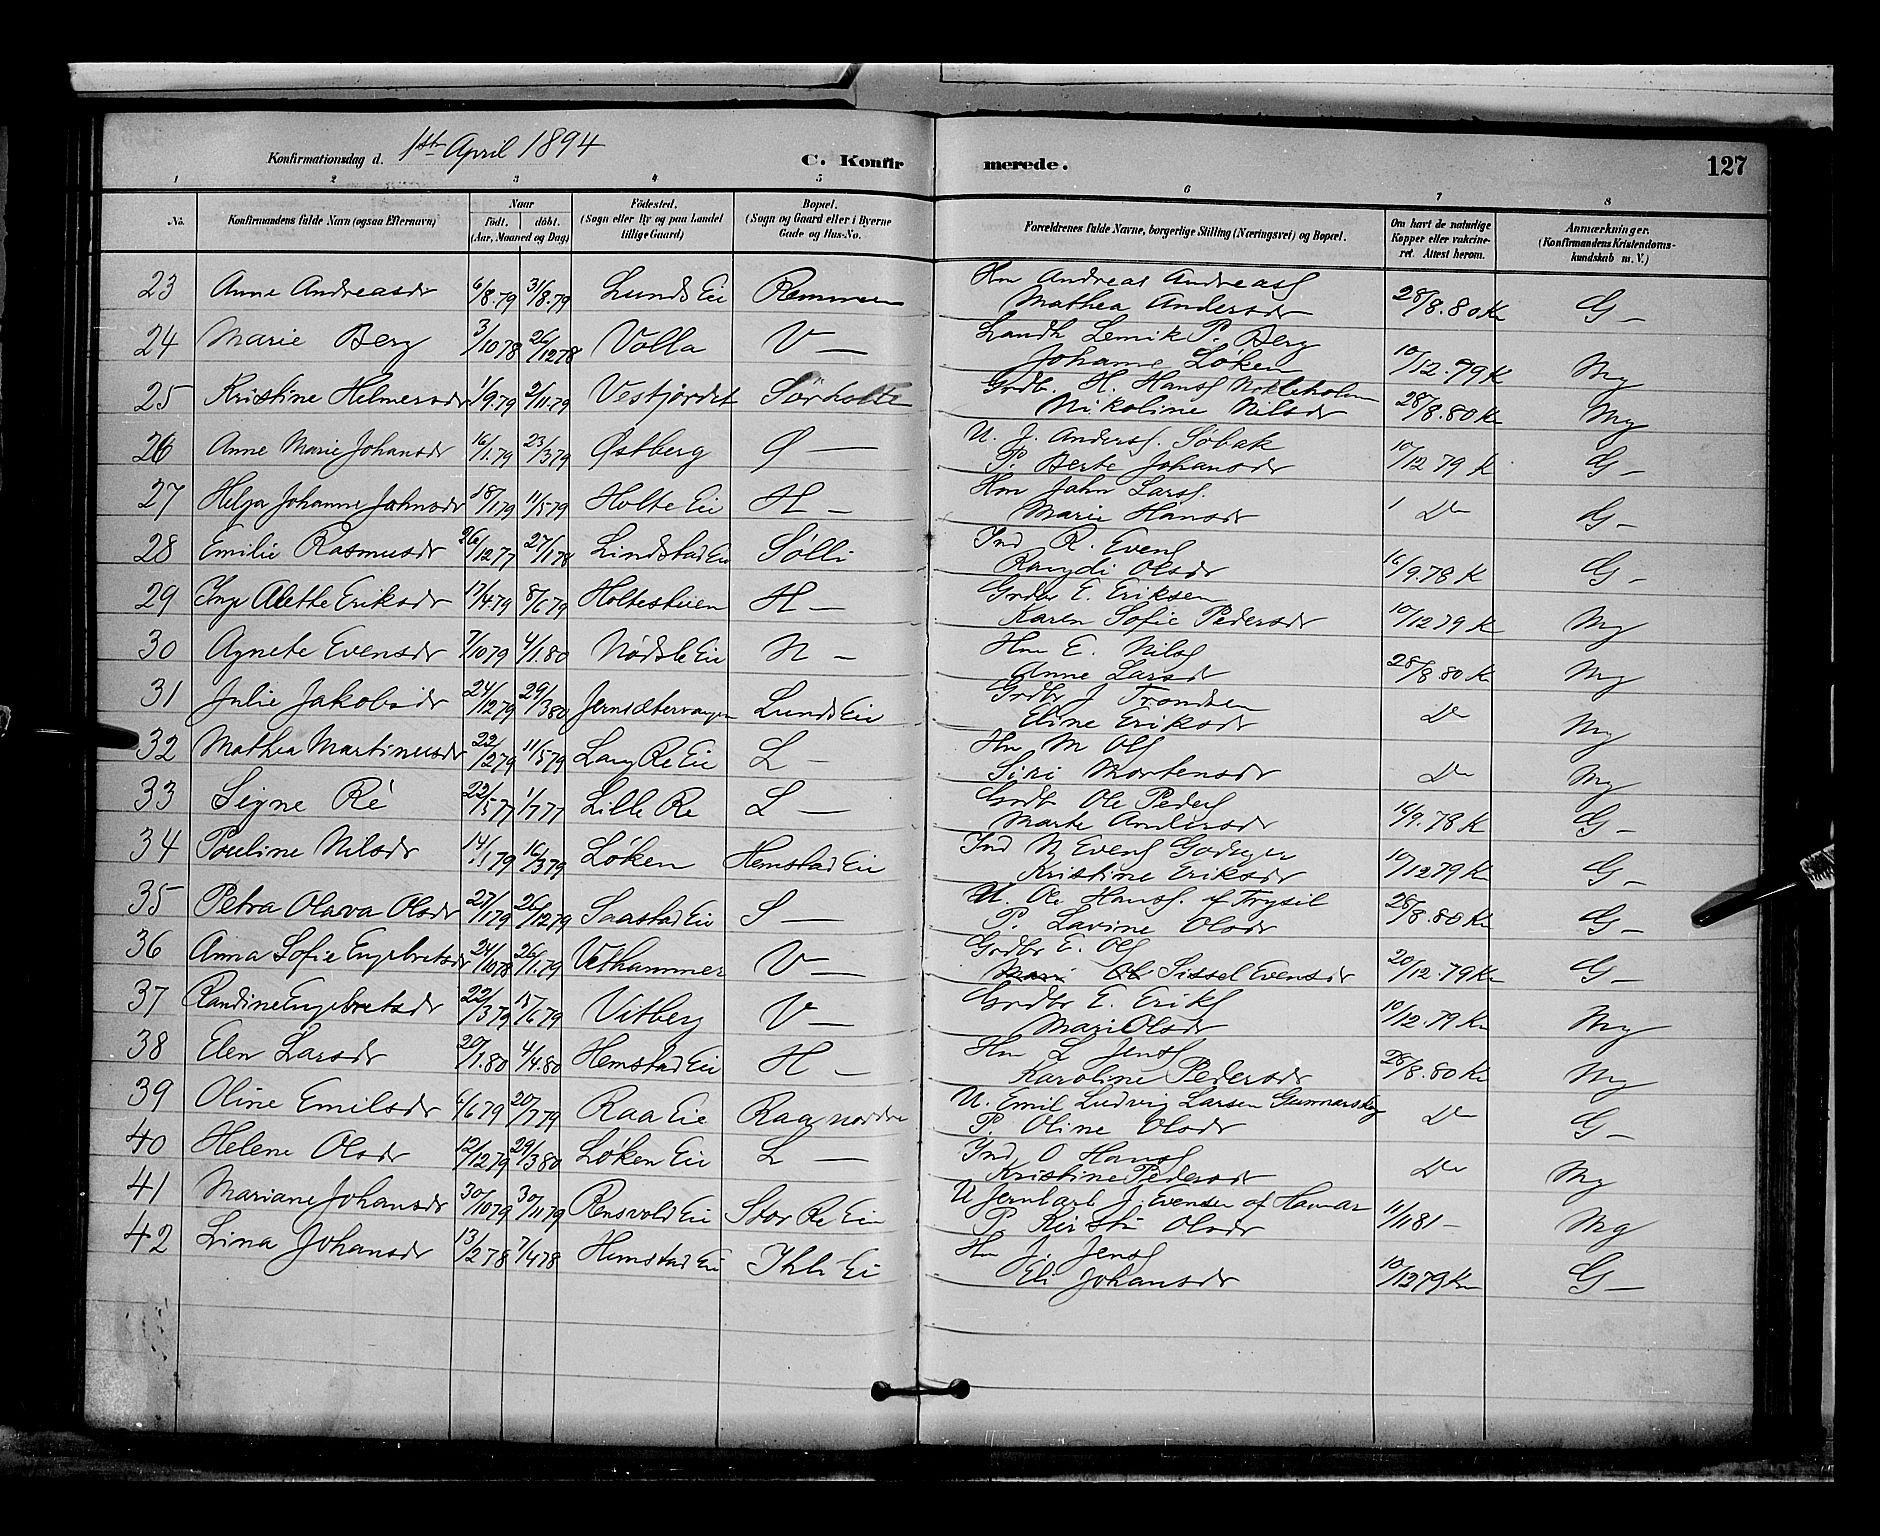 Konfirmationsdag d. 1ste April 1894 C. Konfirmerede. 127
1 2 3 4 5 6 7 8
No. Konfirmandens fulde Navn (ogsaa Efternavn) Naar født. døbt. (Aar, Maaned og Dag) Fødested. (Sogn eller By og paa Landet tillige Gaard) Bopæl. (Sogn og Gaard eller i Byerne Gade og Hus-No. Forældrenes fulde Navne, borgerlige Stilling (Næringsvei) og Bopæl. Om havt de naturlige Kopper eller vakcineret. Attest herom. Anmærkninger. (Konfirmandens Kristendomskundskab m. V.)
23 Anne Andreasdr 6/8.79 31/8.79 Lunds Eie Remmen Hm Andreas Andreass
Mathea Andersdr 28/8.80 K G —
24 Marie Berg 3/10 78 26/12 78 Volla V — Landh Lemik P. Berg
Johanne Løken 10/12.79 K Mg
25 Kristine Helmersdr 1/9.79 2/11.79 Vestjordet Sørholte Grdbr. H. Hanss Mokleholm
Nikoline Nilsdr 28/8.80 K Mg
26 Anne Marie Johansdr 16/1.79 23/3 79 Østberg Ø — U. J. Anderss. Søbak
P. Berte Johansdr 10/12 79 K G —
27 Helga Johanne Jahnsdr 18/1 79 11/5 79 Holte Eie H — Hm Jahn Larss.
Marie Hansdr Do G —
28 Emilie Rasmusdr 26/12 77 27/1 78 Lindstad Eie Sølli Ind R. Evens
Rangdi Olsdr 16/9.78 K G —
29 Inge Alette Eriksdr 17/4 79 8/6 79 Holtesteien H — Grdbr E. Eriksen
Karen Sofie Pedersdr 10/12 79 K Mg
30 Agnete Evensdr 7/10 79 4/1.80 Nødsle Eie N — Hm E. Nilss
Anne Larsdr 28/8 80 K Mg
31 Julie Jakobsdr 24/12 79 29/3 80 Jernsætervangen Lunds Eie Grdbr J Trondsen
Eline Eriksdr Do Mg
32 Mathea Martinusdr 22/2 79 11/5 79 Lang Re Eie L — Hm M Ols
Siri Mortensdr Do Mg
33 Signe Ré 22/5 77 1/7 77 Lille Re L — Grdbr Ole Peders
Marte Andersdr 16/9.78 K G —
34 Pouline Nilsdr 14/1 79 16/3 79 Løken Hemstad Eie Ind N Evens
Kristine Eriksdr 10/12 79 K G —
35 Petra Olava Olsdr 27/1 79 26/12 79 Saastad Eie S — U. Ole Hanss. af Trysil
P. Lavine Olsdr 28/8.80 K G —
36 Anna Sofie Engebretsdr 24/10 78 26/1.79 Vethammer V — Grdbr E. Ols
Mari Ol Sissel Evensdr 20/12.79 K G —
37 Randine Engebretsdr 22/3 79 15/6 79 Vitberg V — Grdbr E. Eriks
Mari Olsdr 10/12.79 K Mg
38 Elen Larsdr 20/1.80 4/4.80 Hemstad Eie H — Hm L Jenss
Karoline Pedersdr 28/8.80 K Mg
39 Oline Emilsdr 6/6 79 20/7 79 Raa Eie Raa nordre U. Emil Ludvig Larsen Gunnarskg
P. Oline Olsdr Do G —
40 Helene Olsdr 12/12 79 29/3 80 Løken Eie L — Ind O Hanss
Kristine Pedersdr Do Mg
41 Mariane Johansdr 30/10 79 30/11 79 Rensvold Eie Stor Re Eie U Jernbarb J. Evensen af Hamar
P. Kirsti Olsdr 11/1 81 — Mg
42 Lina Johansdr 13/2 78 7/4 78 Hemstad Eie Ihle Ei Hm J. Jenss
Eli Johansdr 10/12 79 K G —